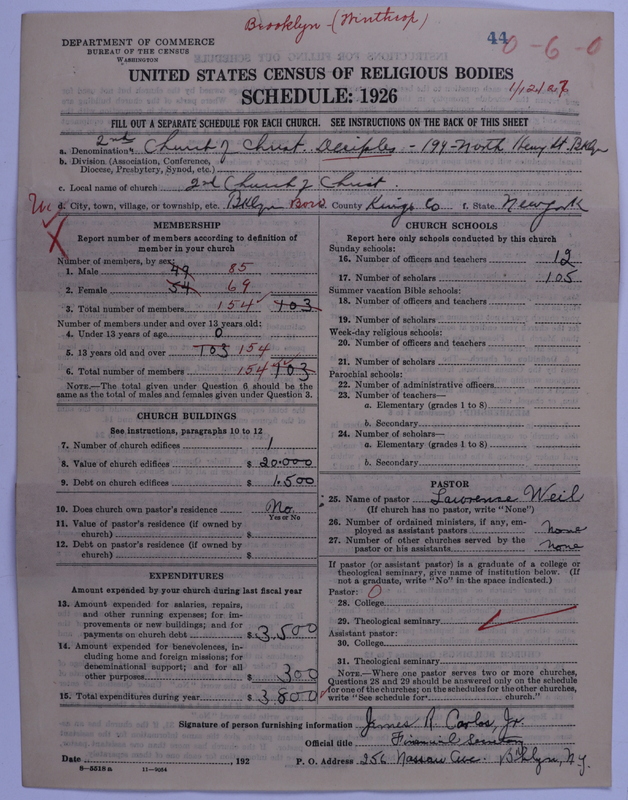 Brooklyn (Winthrop)
44 0-6-0
DEPARTMENT OF COMMERCE
BUREAU OF THE CENSUS
WASHINGTON
UNITED STATES CENSUS OF RELIGIOUS BODIES
SCHEDULE: 1926
FILL OUT A SEPARATE SCHEDULE FOR EACH CHURCH. SEE INSTRUCTIONS ON THE BACK OF THIS SHEET
a. Denomination 2nd Church of Christ. Disciples - 194-North Henry St. Bklyn
b. Division (Association, Conference, Diocese, Presbytery, Synod, etc.)
c. Local name of church 2nd Church of Christ.
d. City, town, village, or township, etc. Bklyn Boro. County Kings Co f. State New York
MEMBERSHIP
Report number of members according to definition of member in your church
Number of members, by sex:
1. Male 49 85
2. Female 54 69
3. Total number of members 154 103
Number of members under and over 13 years old:
4. Under 13 years of age 0
5. 13 years old and over 103 154
6. Total number of members 154 103
NOTE.—The total given under Question 6 should be the same as the total of males and females given under Question 3.
CHURCH BUILDINGS
See instructions, paragraphs 10 to 12
7. Number of church edifices 1
8. Value of church edifices $ 20.000
9. Debt on church edifices $ 1.500
10. Does church own pastor's residence? No.
Yes or No
11. Value of pastor's residence (if owned by church) $
12. Debt on pastor's residence (if owned by church) $
EXPENDITURES
Amount expended by your church during last fiscal year
13. Amount expended for salaries, repairs, and other running expenses; for improvements or new buildings; and for payments on church debt $ 3.500
14. Amount expended for benevolences, including home and foreign missions; for denominational support; and for all other purposes $ 300
15. Total expenditures during year $ 3800
CHURCH SCHOOLS
Report here only schools conducted by this church
Sunday schools:
16. Number of officers and teachers 12
17. Number of scholars 105
Summer vacation Bible schools:
18. Number of officers and teachers
19. Number of scholars
Week-day religious schools:
20. Number of officers and teachers
21. Number of scholars
Parochial schools:
22. Number of administrative officers
23. Number of teachers—
a. Elementary (grades 1 to 8)
b. Secondary
24. Number of scholars—
a. Elementary (grades 1 to 8)
b. Secondary
PASTOR
25. Name of pastor Lawrense Weil
(If church has no pastor, write "None")
26. Number of ordained ministers, if any, employed as assistant pastors none
27. Number of other churches served by the pastor or his assistants none
If pastor (or assistant pastor) is a graduate of a college or theological seminary, give name of institution below. (If not a graduate, write "No" in the space indicated.)
Pastor: 0
28. College
29. Theological seminary
Assistant pastor:
30. College
31. Theological seminary
NOTE.—Where one pastor serves two or more churches, Questions 28 and 29 should be answered only on the schedule for one of the churches; on the schedules for the other churches, write "See schedule for church."
Signature of person furnishing information James R. Carlos, Jr.
Official title Financial Secretary
Date , 192 P. O. Address 256 Nassau Ave. Bklyn, N.Y.
8—5518a 11—9064